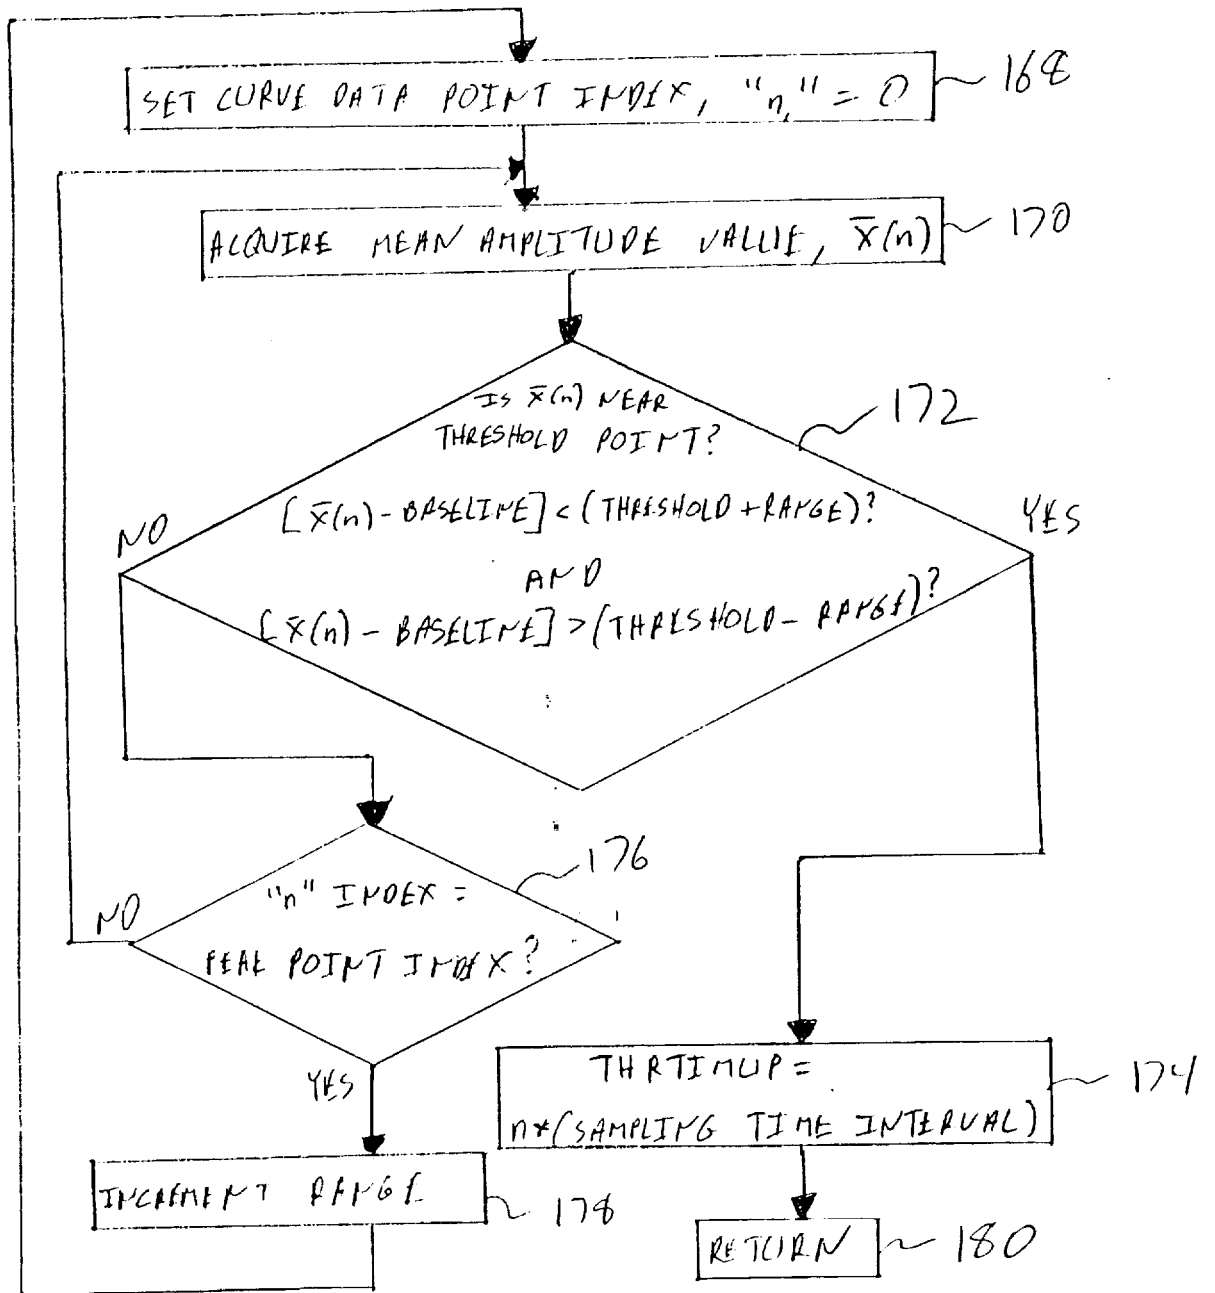 SET CURVE DATA POINT INDEX, "n," = 0
168
ACQUIRE MEAN AMPLITUDE VALUE, x̄(n)
170
IS x̄(n) NEAR
THRESHOLD POINT?
172
[x̄(n) - BASELINE] < (THRESHOLD + RANGE)?
NO
YES
AND
[x̄(n) - BASELINE] > (THRESHOLD - RANGE)?
176
"n" INDEX =
NO
PEAK POINT INDEX?
THRTIMUP =
174
YES
n*(SAMPLING TIME INTERVAL)
INCREMENT RANGE
178
RETURN
180